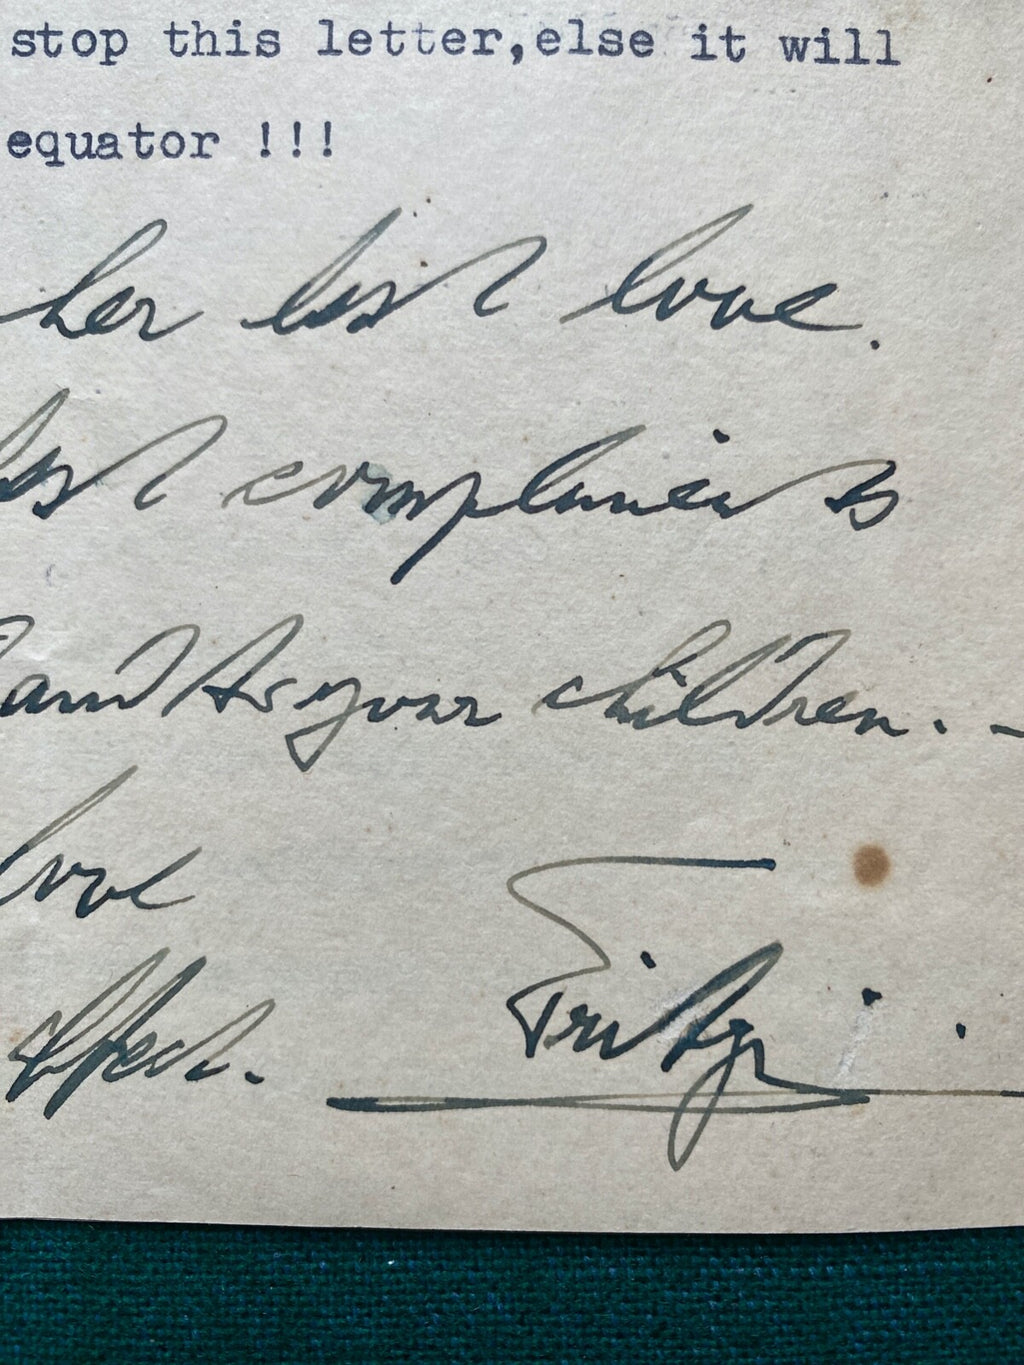 stop this letter,else it will
equator !!!
her best love.
best compliments
and to your children. -
love
affect. Fritzi.